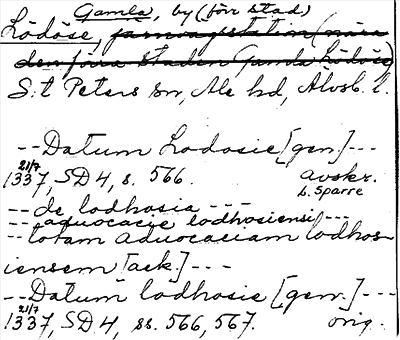 Gamla, by (förr stad)
Lödöse, järnvägsstation (nära
den förra staden Gamla Lödöse)
S:t Peters sn, Ale hd, Älvsb. l.
--Datum Lodosie [gen.]---
21/7
1337, SD 4, s. 566. avskr.
L. Sparre
--de lodhosia ---
--aduocacie lodhosiensi---
--totam aduocaciam lodhos-
iensem [ack.]---
--Datum lodhosie [gen.]---
21/7
1337, SD 4, ss. 566, 567. orig.